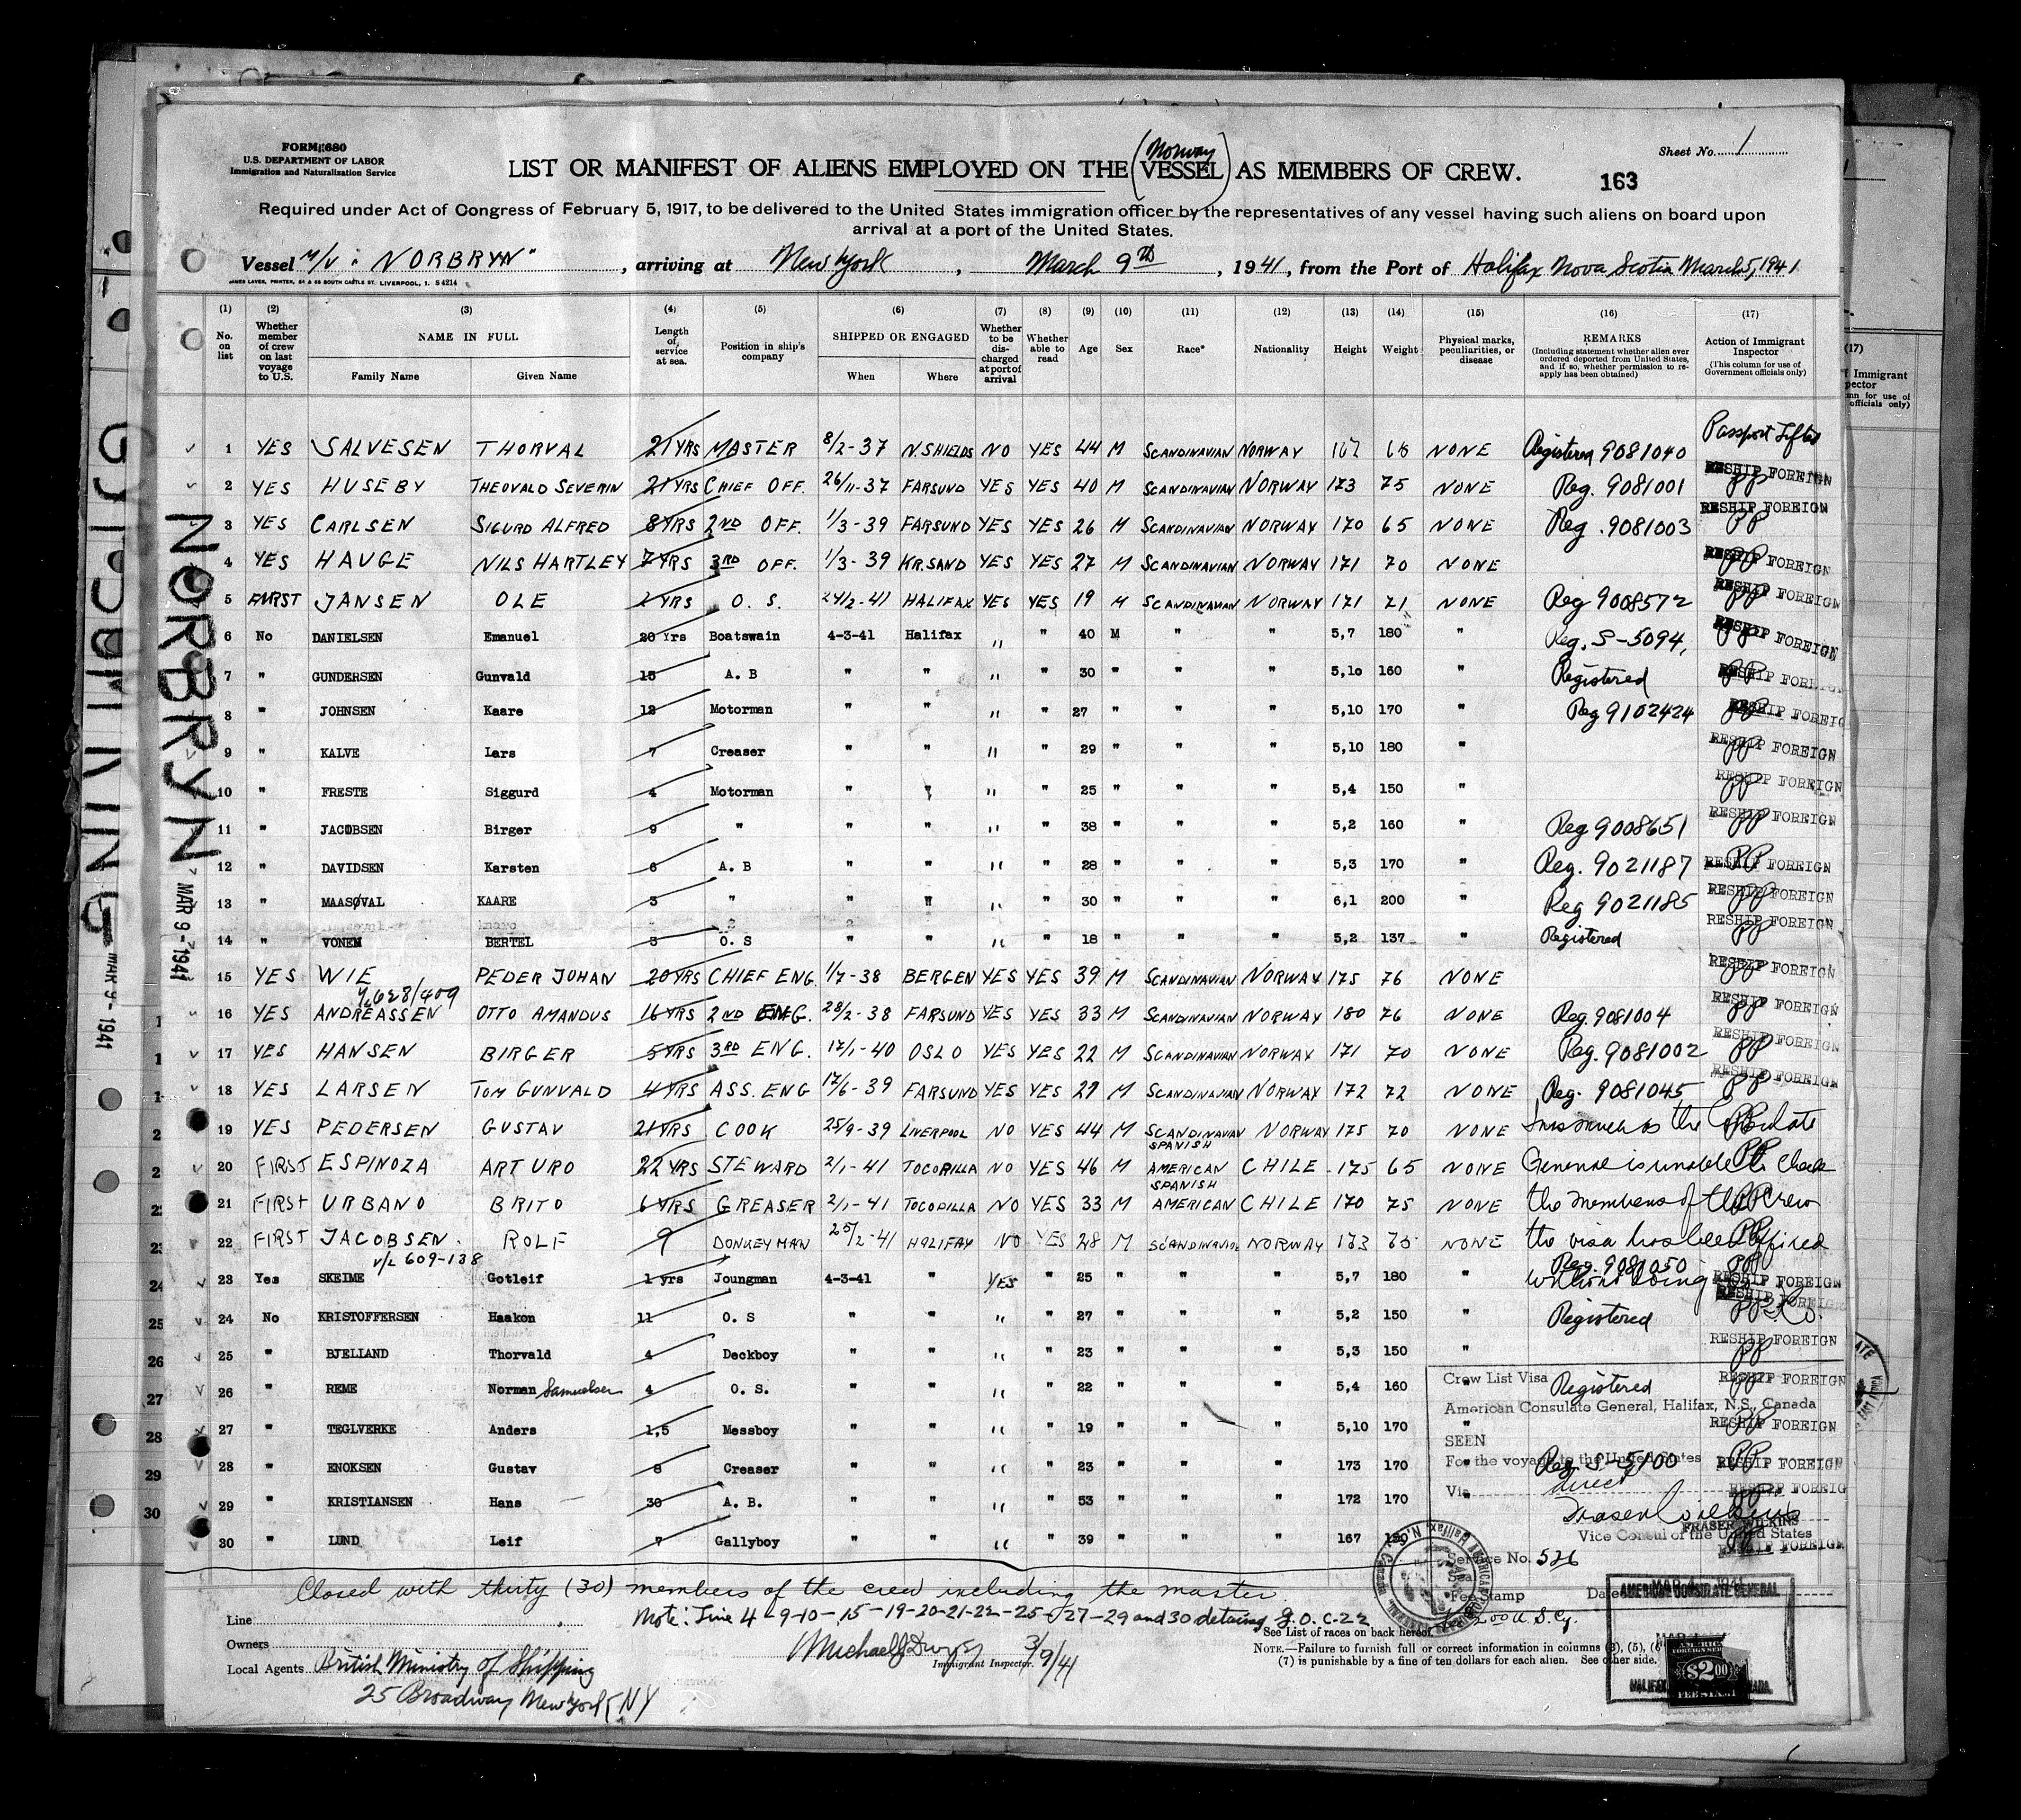 FORM 680
U.S. DEPARTMENT OF LABOR
Immigration and Naturalization Service
Sheet No. 1
Norway
LIST OR MANIFEST OF ALIENS EMPLOYED ON THE (VESSEL) AS MEMBERS OF CREW.
163
Required under Act of Congress of February 5, 1917, to be delivered to the United States immigration officer by the representatives of any vessel having such aliens on board upon
arrival at a port of the United States.
Vessel M/V "NORBRYN", arriving at New York, March 9th, 1941, from the Port of Halifax Nova Scotia March 5, 1941
JAMES LAVER, PRINTER, 54 & 56 SOUTH CASTLE ST. LIVERPOOL, 1. S 4214
(1) (2) (3) (4) (5) (6) (7) (8) (9) (10) (11) (12) (13) (14) (15) (16) (17)
No. on list
Whether member of crew on last voyage to U.S.
NAME IN FULL
Family Name
Given Name
Length of service at sea.
Position in ship's company
SHIPPED OR ENGAGED
When
Where
Whether to be discharged at port of arrival
Whether able to read
Age
Sex
Race*
Nationality
Height
Weight
Physical marks, peculiarities, or disease
REMARKS
(Including statement whether alien ever ordered deported from United States, and if so, whether permission to reapply has been obtained)
Action of Immigrant Inspector
(This column for use of Government officials only)
Passport Lifted
1 YES SALVESEN THORVAL 21 YRS MASTER 8/2-37 N. SHIELDS NO YES 44 M SCANDINAVIAN NORWAY 167 68 NONE Registered 9081040
2 YES HUSEBY THEOVALD SEVERIN 21 YRS CHIEF OFF. 26/11-37 FARSUND YES YES 40 M SCANDINAVIAN NORWAY 173 75 NONE Reg. 9081001 RESHIP FOREIGN
3 YES CARLSEN SIGURD ALFRED 8 YRS 2ND OFF. 1/3-39 FARSUND YES YES 26 M SCANDINAVIAN NORWAY 170 65 NONE Reg. 9081003 RESHIP FOREIGN
4 YES HAUGE NILS HARTLEY 7 YRS 3RD OFF. 1/3-39 KR.SAND YES YES 27 M SCANDINAVIAN NORWAY 171 70 NONE RESHIP FOREIGN
5 FIRST JANSEN OLE 2 YRS O. S. 24/2-41 HALIFAX YES YES 19 M SCANDINAVIAN NORWAY 171 71 NONE Reg 9008572 RESHIP FOREIGN
6 No DANIELSEN Emanuel 20 Yrs Boatswain 4-3-41 Halifax " " 40 M " " 5,7 180 " Reg. S-5094, RESHIP FOREIGN
7 " GUNDERSEN Gunvald 15 A. B " " " " 30 " " " 5,10 160 " Registered RESHIP FOREIGN
8 " JOHNSEN Kaare 12 Motorman " " " " 27 " " " 5,10 170 " Reg 9102424 RESHIP FOREIGN
9 " KALVE Lars 7 Creaser " " " " 29 " " " 5,10 180 " RESHIP FOREIGN
10 " FRESTE Siggurd 4 Motorman " " " " 25 " " " 5,4 150 " RESHIP FOREIGN
11 " JACOBSEN Birger 9 " " " " " 38 " " " 5,2 160 " Reg 9008651 RESHIP FOREIGN
12 " DAVIDSEN Karsten 6 A. B " " " " 28 " " " 5,3 170 " Reg. 9021187 RESHIP FOREIGN
13 " MAASØVAL KAARE 3 " " " " " 30 " " " 6,1 200 " Reg 9021185 RESHIP FOREIGN
14 " VONEM BERTEL 3 O. S " " " " 18 " " " 5,2 137 " Registered RESHIP FOREIGN
15 YES WIE PEDER JOHAN 20 YRS CHIEF ENG. 1/7-38 BERGEN YES YES 39 M SCANDINAVIAN NORWAY 175 76 NONE RESHIP FOREIGN
16 YES ANDREASSEN OTTO AMANDUS 16 YRS 2ND ENG. 28/2-38 FARSUND YES YES 33 M SCANDINAVIAN NORWAY 180 76 NONE Reg. 9081004 RESHIP FOREIGN
17 YES HANSEN BIRGER 5 YRS 3RD ENG. 17/1-40 OSLO YES YES 22 M SCANDINAVIAN NORWAY 171 70 NONE Reg. 9081002 RESHIP FOREIGN
18 YES LARSEN TOM GUNVALD 4 YRS ASS. ENG 17/6-39 FARSUND YES YES 27 M SCANDINAVIAN NORWAY 172 72 NONE Reg. 9081045 RESHIP FOREIGN
19 YES PEDERSEN GUSTAV 21 YRS COOK 25/9-39 LIVERPOOL NO YES 44 M SCANDINAVIAN NORWAY 175 70 NONE Inasmuch as the Consulate
20 FIRST ESPINOZA ARTURO 22 YRS STEWARD 2/1-41 TOCOPILLA NO YES 46 M SPANISH AMERICAN CHILE 175 65 NONE General is unable to check
21 FIRST URBANO BRITO 6 YRS GREASER 2/1-41 TOCOPILLA NO YES 33 M SPANISH AMERICAN CHILE 170 75 NONE the members of the crew
22 FIRST JACOBSEN ROLF 9 DONKEYMAN 25/2-41 HALIFAX NO YES 28 M SCANDINAVIAN NORWAY 173 75 NONE the visa has been affixed
v/L 609-138 Reg. 9081050
23 Yes SKEIME Gotleif 1 yrs Joungman 4-3-41 " YES " 25 " " " 5,7 180 " without doing so RESHIP FOREIGN
24 No KRISTOFFERSEN Haakon 11 O. S " " " " 27 " " " 5,2 150 " Registered RESHIP FOREIGN
25 " BJELLAND Thorvald 4 Deckboy " " " " 23 " " " 5,3 150 RESHIP FOREIGN
26 " REME Norman Samuelsen 4 O. S. " " " " 22 " " " 5,4 160 " Registered RESHIP FOREIGN
27 " TEGLVERKE Anders 1,5 Messboy " " " " 19 " " " 5,10 170 " RESHIP FOREIGN
28 " ENOKSEN Gustav 8 Creaser " " " " 23 " " " 173 170 " Reg. S-5100 RESHIP FOREIGN
29 " KRISTIANSEN Hans 30 A. B. " " " " 53 " " " 172 170 " RESHIP FOREIGN
30 " LUND Leif 7 Gallyboy " " " " 39 " " " 167 RESHIP FOREIGN
Crew List Visa
American Consulate General, Halifax, N.S., Canada
SEEN
For the voyage to the United States
Via direct
Fraser Wilkins
FRASER WILKINS
Vice Consul of the United States
Service No. 526
Seal
Fee Stamp
Date
Closed with thirty (30) members of the crew including the master
Note: Line 4-9-10-15-19-20-21-22-25-27-29 and 30 detained G.O. C-22
Line
Owners
Local Agents British Ministry of Shipping
25 Broadway New York NY
Michael J Dwyer 3/9/41
Immigrant Inspector.
See List of races on back hereof.
NOTE.—Failure to furnish full or correct information in columns (3), (5), (6
(7) is punishable by a fine of ten dollars for each alien. See other side.
AMERICAN CONSULATE GENERAL
$2.00
NORBRYN
MAR 9-1941
MAR 9-1941